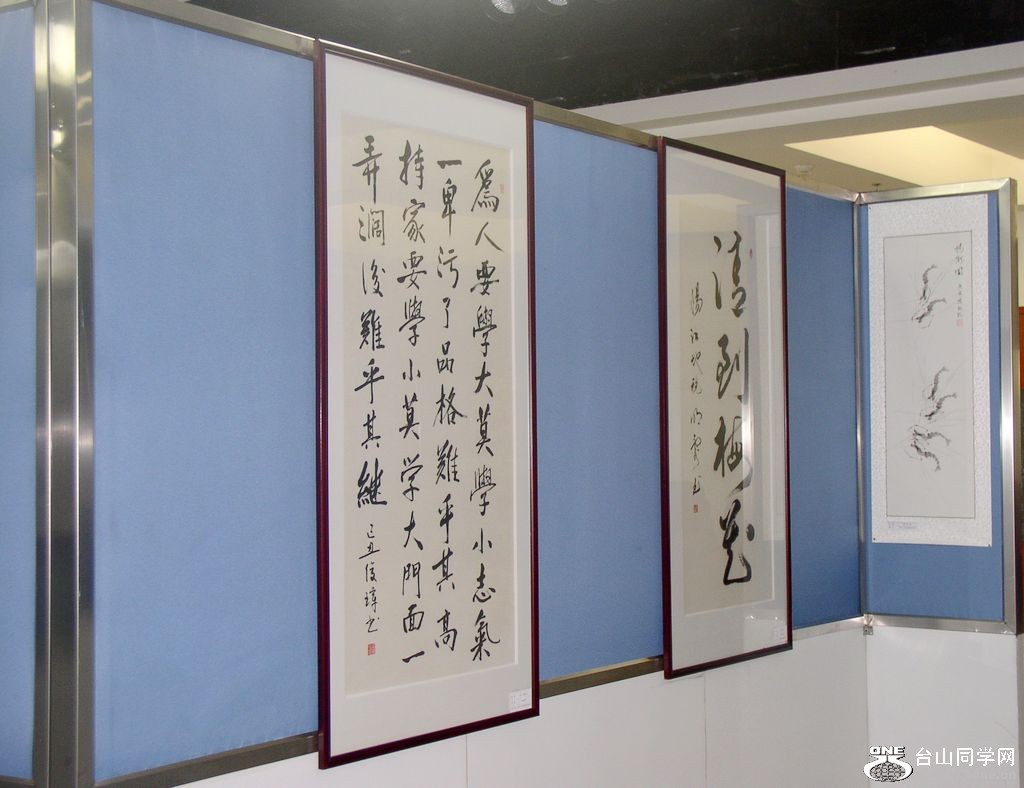 為人要學大莫學小志氣
一卑污了品格難乎其高
持家要學小莫学大門面一
弄濶後難乎其継
己丑俊璋书
清到梅花
ONE
台山同学网